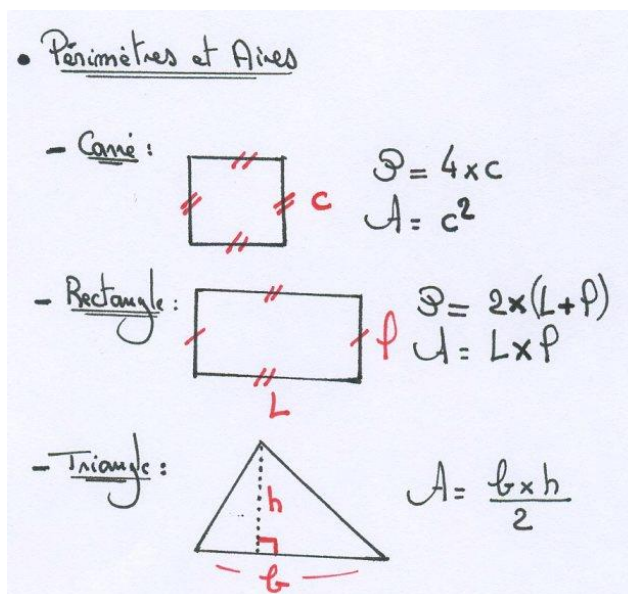 • Périmètres et Aires
- Carré :
c
P = 4 × c
A = c²
- Rectangle :
l
L
P = 2 × (L + l)
A = L × l
- Triangle :
h
b
A = b × h
2